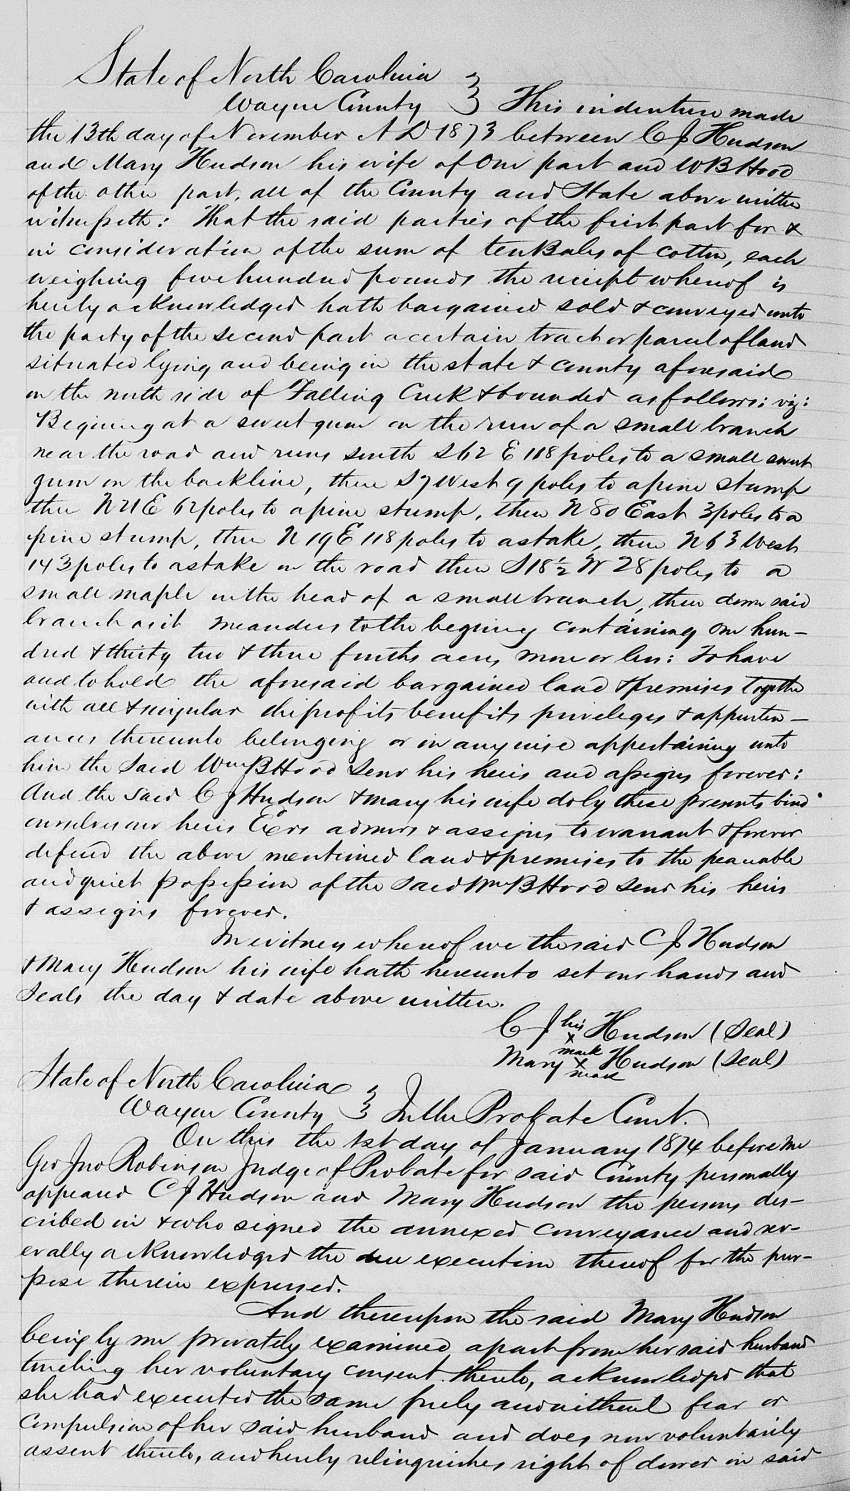 State of North Carolina
Wayne County } This indenture made
the 13th day of November A D 1873 between C J Hudson
and Mary Hudson his wife of One part and W B Hood
of the other part, all of the County and State above written
witnesseth: That the said parties of the first part for &
in consideration of the sum of ten Bales of cotton, each
weighing five hundred pounds the receipt whereof is
hereby acknowledged hath bargained sold & conveyed unto
the party of the second part a certain tract or parcel of land
situated lying and being in the state & county aforesaid
on the north side of Falling Creek & bounded as follows: viz:
Begining at a sweet gum on the run of a small branch
near the road and runs south S 62 E 118 poles to a small sweet
gum on the backline, then S 7 West 9 poles to a pine stump
then N 21 E 62 poles to a pine stump, then N 80 East 3 poles to a
pine stump, then N 19 E 118 poles to a stake, then N 63 West
143 poles to a stake in the road then S 18½ W 28 poles to a
small maple in the head of a small branch, then down said
branch as it meanders to the begining containing one hun-
dred & thirty two & three fourths acres more or less: To have
and to hold the aforesaid bargained land & premises together
with all & singular the profits benefits privileges & appurten-
ances thereunto belonging or in any wise appertaining unto
him the said Wm B Hood Senr his heirs and assigns forever:
And the said C J Hudson & Mary his wife do by these presents bind
ourselves our heirs Exrs admrs & assigns to warrant & forever
defend the above mentioned land & premises to the peaceable
and quiet possession of the said Wm B Hood Senr his heirs
& assigns forever.
In witness whereof we the said C J Hudson
& Mary Hudson his wife hath hereunto set our hands and
Seals the day & date above written.
C J his x mark Hudson (Seal)
Mary x mark Hudson (Seal)
State of North Carolina
Wayne County } In the Probate Court.
On this the 1st day of January 1874 before me
Geo Jno Robinson Judge of Probate for said County personally
appeared C J Hudson and Mary Hudson the persons des-
cribed in & who signed the annexed conveyance and sev-
erally acknowledged the due execution thereof for the pur-
pose therein expressed.
And thereupon the said Mary Hudson
being by me privately examined, apart from her said husband
touching her voluntary consent thereto, acknowledged that
she had executed the same freely and without fear or
Compulsion of her said husband and does now voluntarily
assent thereto, and hereby relinquishes right of dower in said